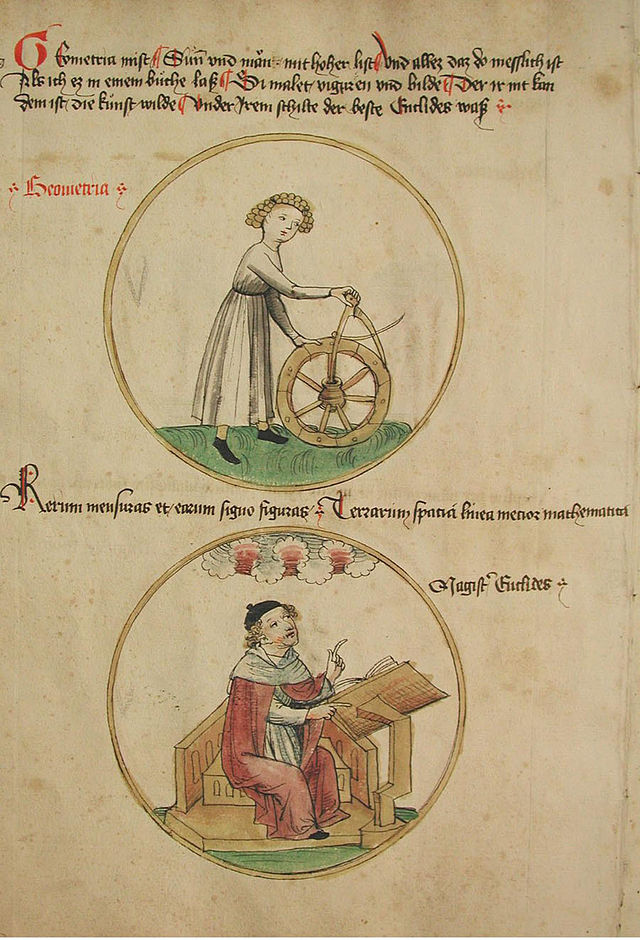 Geometria mist Sunn vnd män mit hoher list Vnd allez daz do messlich ist
Als ich ez in einem bůche laß Si malet viguren vnd bilde Der ir nit kan
dem ist die kunst wilde Vnder Irem schilte der beste Euclides waß
Geometria
Rerum mensuras et earum signo figuras Terrarum spatia linea metior mathematica
Magistʳ Euclides